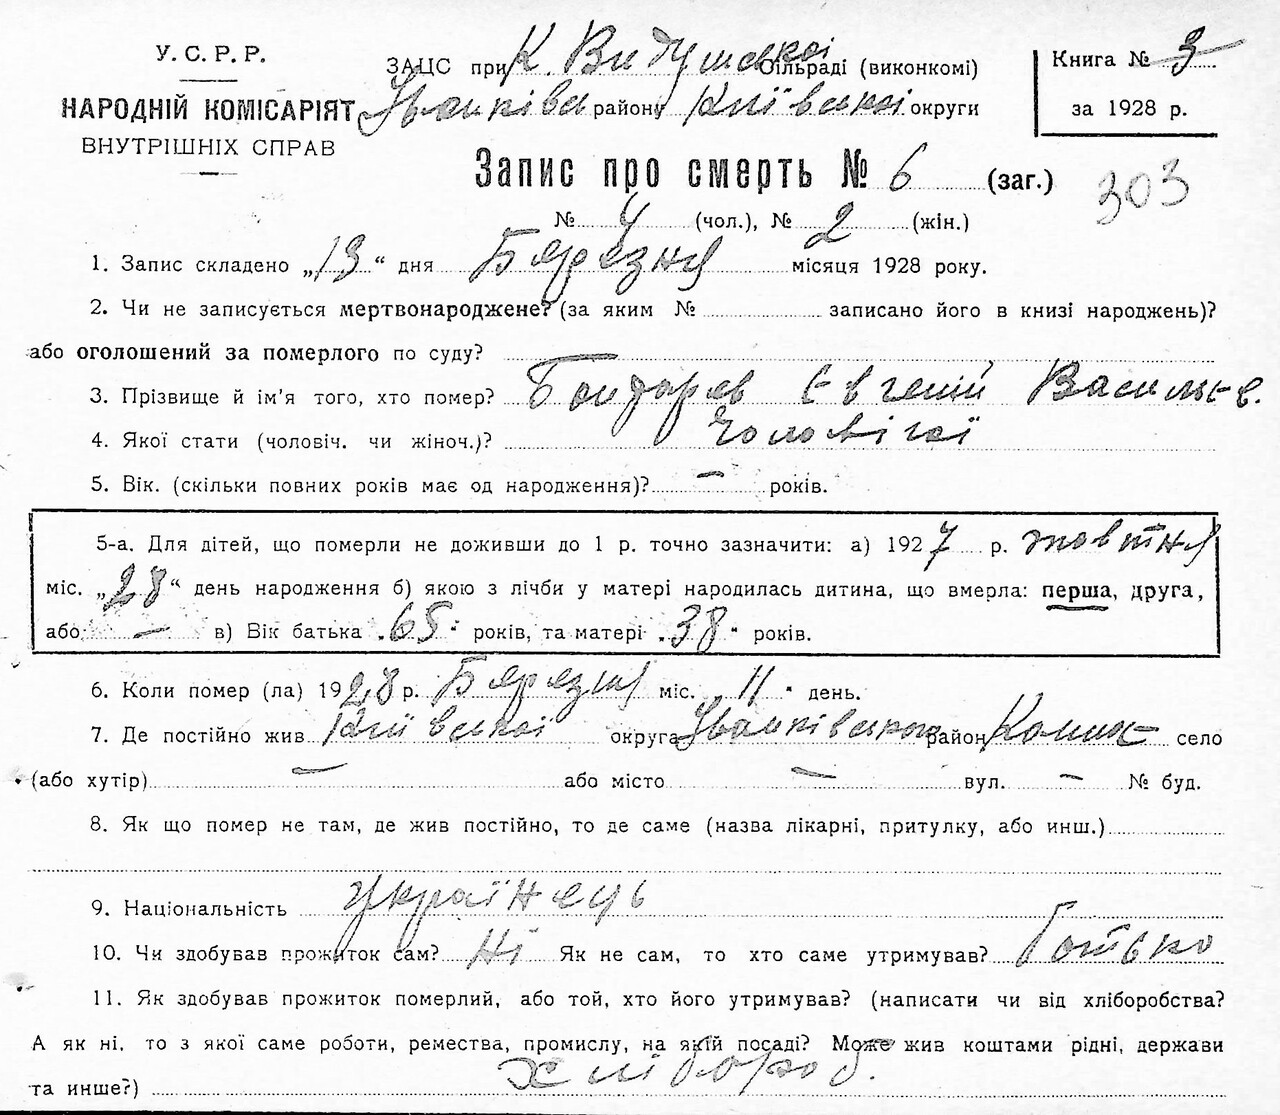 У. С. Р. Р.
НАРОДНІЙ КОМІСАРІЯТ
ВНУТРІШНІХ СПРАВ
ЗАЦС при К. сільраді (виконкомі)
району Київської округи
Книга № 3
за 1928 р.
Запис про смерть № 6 (заг.)
303
№ 4 (чол.), № 2 (жін.)
1. Запис складено „13“ дня Бярезня місяця 1928 року.
2. Чи не записується мертвонароджене? (за яким № записано його в книзі народжень)?
або оголошений за померлого по суду?
3. Прізвище й ім'я того, хто помер? Бондарев Євгеній
4. Якої стати (чоловіч. чи жіноч.)? Чоловічої
5. Вік. (скільки повних років має од народження)? — років.
5-а. Для дітей, що померли не доживши до 1 р. точно зазначити: а) 1927 р. жовтня
міс. „28“ день народження б) якою з лічби у матері народилась дитина, що вмерла: перша, друга,
або — в) Вік батька 65 років, та матері 38 років.
6. Коли помер (ла) 1928 р. Бярезня міс. 11 день.
7. Де постійно жив Київської округа район село
(або хутір) — або місто — вул. — № буд.
8. Як що помер не там, де жив постійно, то де саме (назва лікарні, притулку, або инш.)
9. Національність Українець
10. Чи здобував прожиток сам? Ні Як не сам, то хто саме утримував? Батько
11. Як здобував прожиток померлий, або той, хто його утримував? (написати чи від хліборобства?
А як ні, то з якої саме роботи, ремества, промислу, на якій посаді? Може жив коштами рідні, держави
та инше?) Хлібороб.